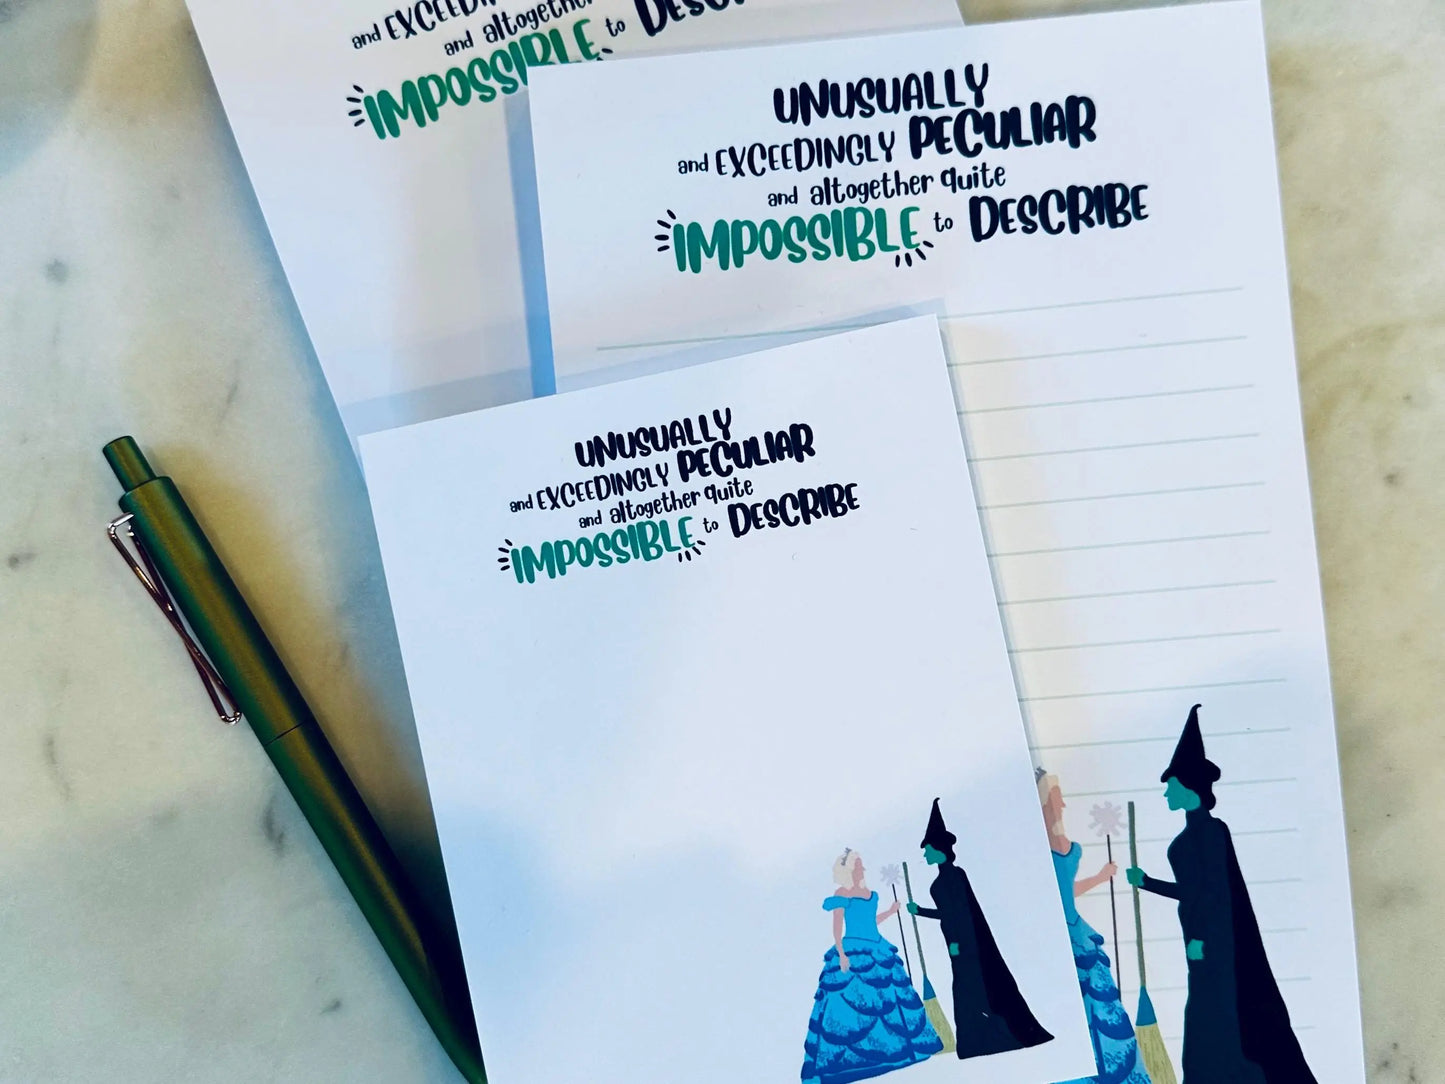 and EXCEEDIN
and altogether
IMPOSSIBLE to DESC
UNUSUALLY
and EXCEEDINGLY PECULIAR
and altogether quite
IMPOSSIBLE to DESCRIBE
UNUSUALLY
and EXCEEDINGLY PECULIAR
and altogether quite
IMPOSSIBLE to DESCRIBE